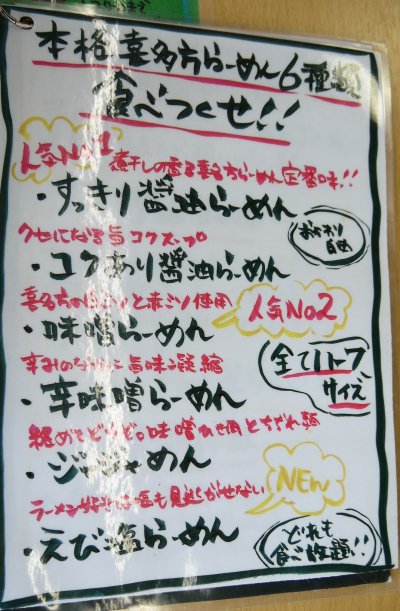 本格喜多方らーめん6種類
食べつくせ!!
人気No1
煮干しの香る喜多方らーめん定番味!!
・すっきり醤油らーめん
おかわり
自由
クセになる旨コクスープ
・コクあり醤油らーめん
喜多方の
と赤ミソ使用
人気No2
・味噌らーめん
辛みのなかに旨味凝縮
・辛味噌らーめん
全てハーフ
サイズ
絡めてどうぞ。味噌
・ジャジャめん
NEW
ラーメン好きは塩も見逃がせない
・えび塩らーめん
どれも
食べ放題!!